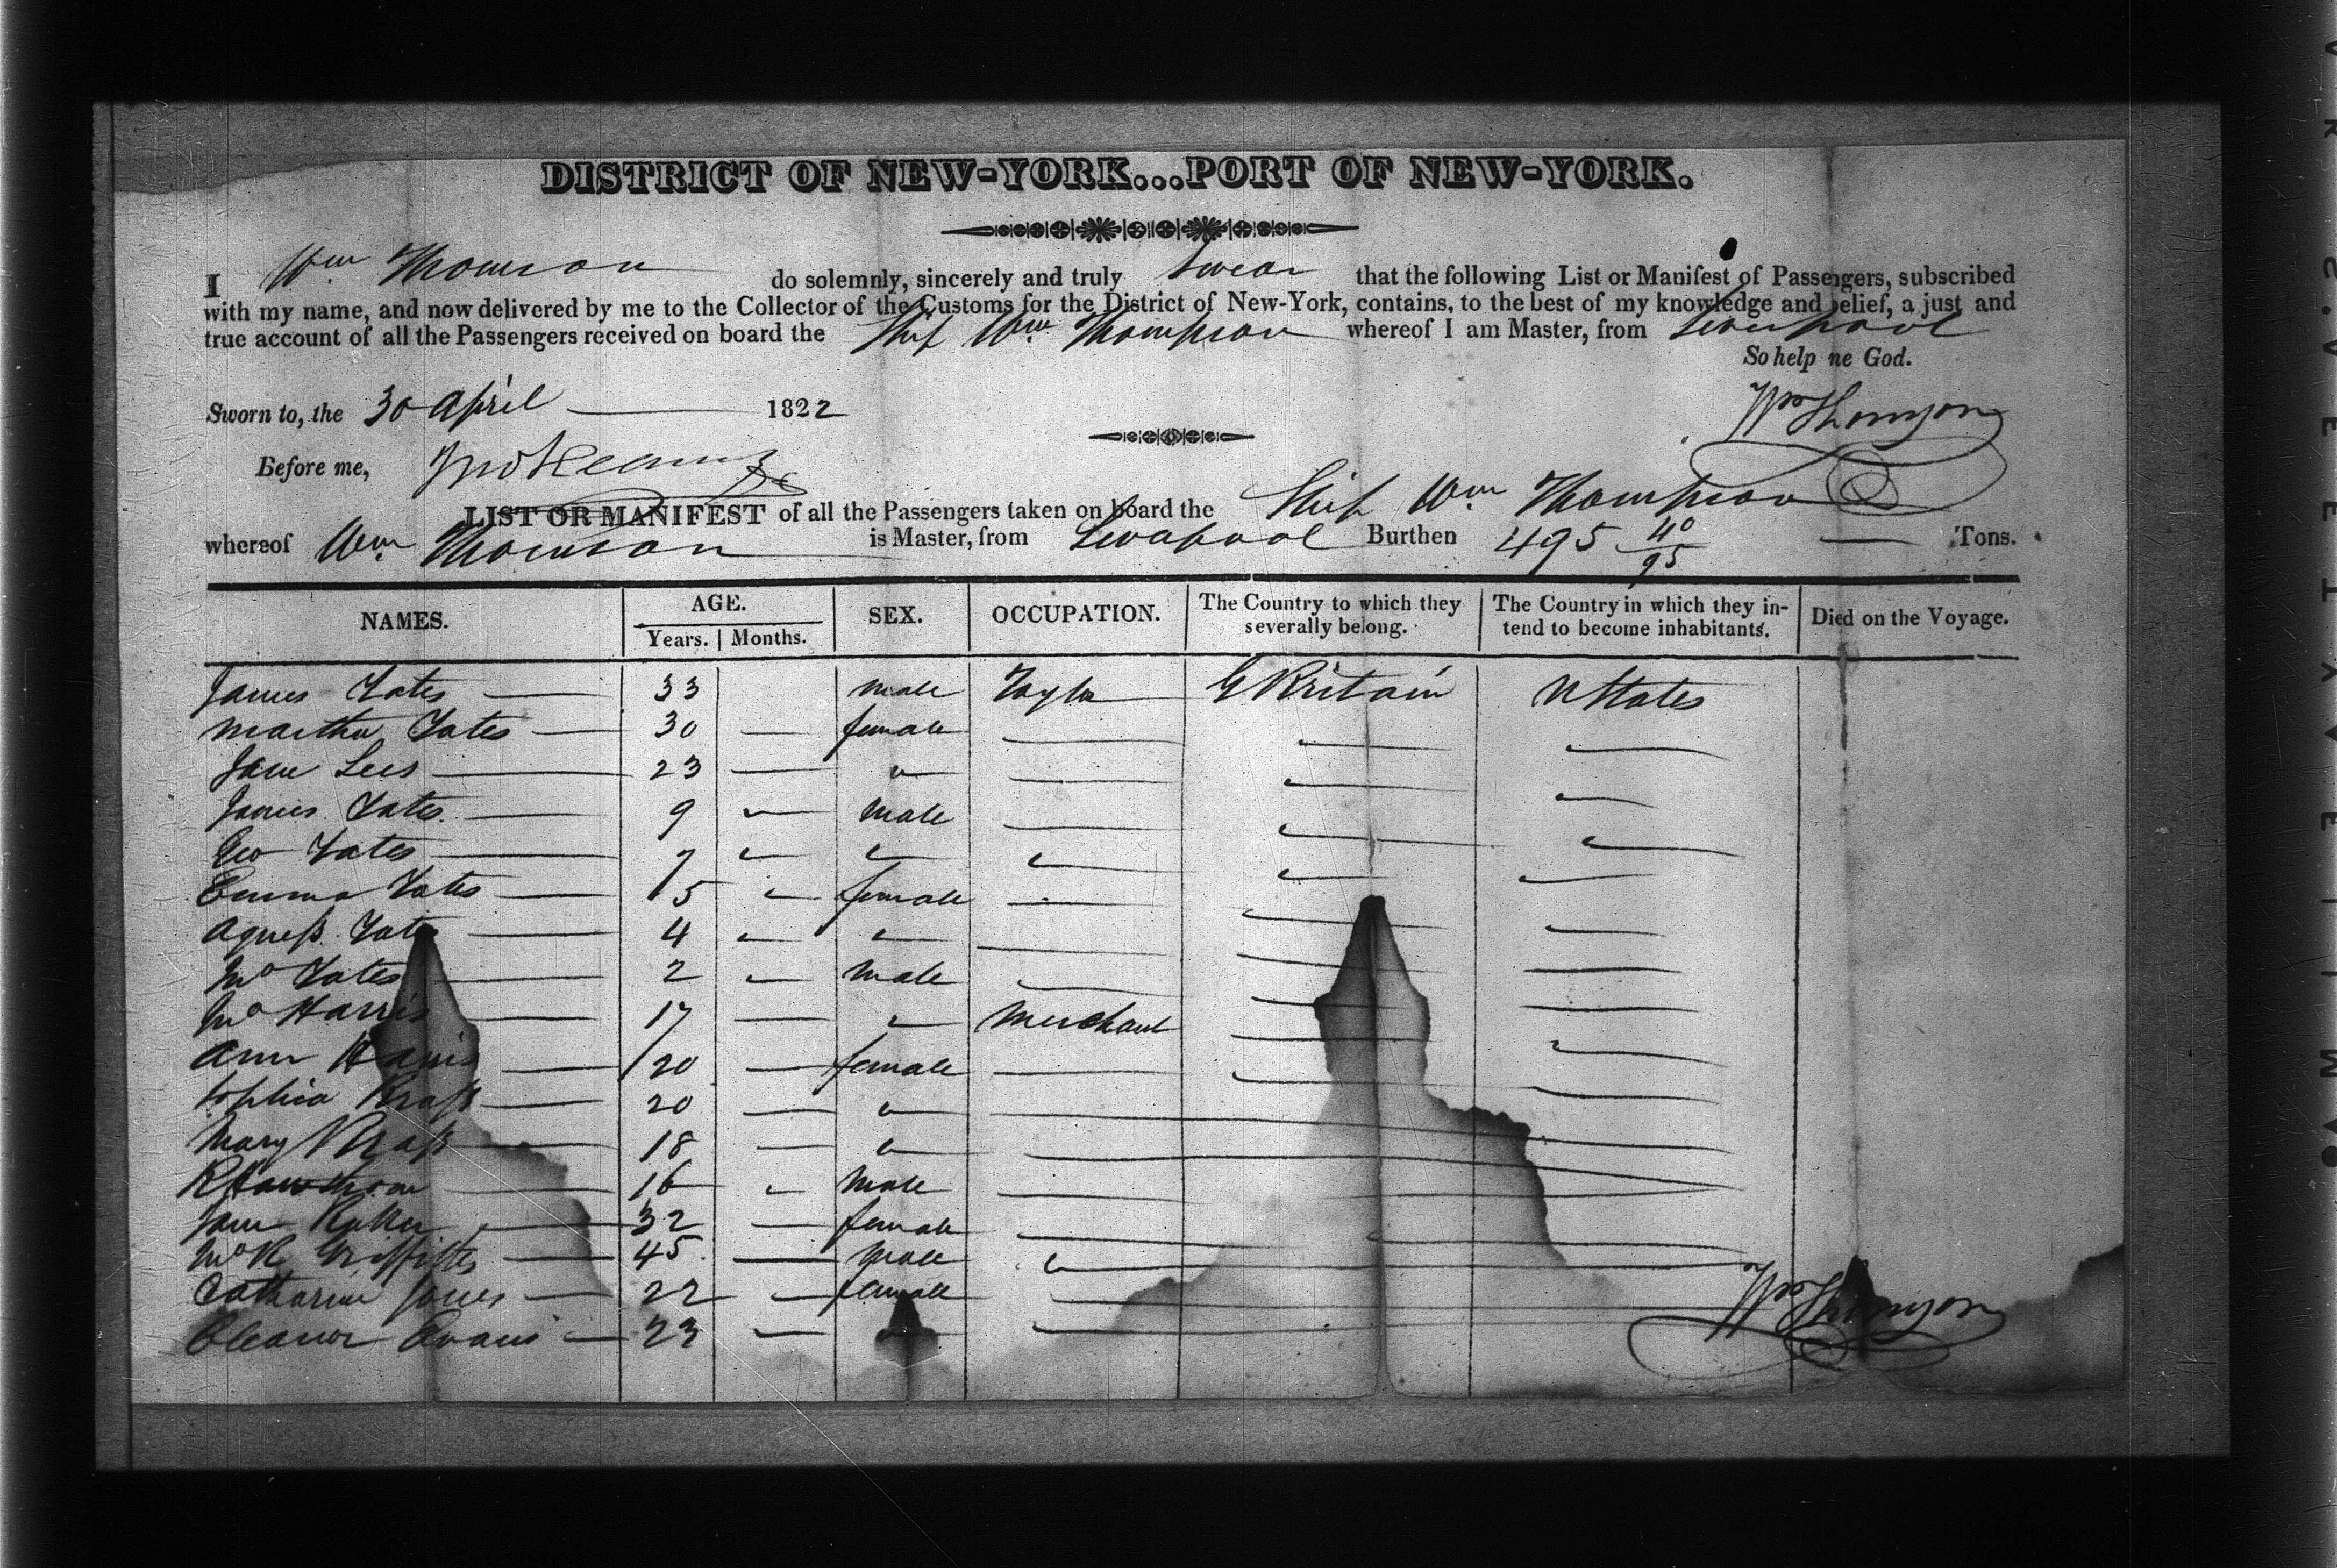 DISTRICT OF NEW-YORK...PORT OF NEW-YORK.
I Wm Thomson do solemnly, sincerely and truly swear that the following List or Manifest of Passengers, subscribed
with my name, and now delivered by me to the Collector of the Customs for the District of New-York, contains, to the best of my knowledge and belief, a just and
true account of all the Passengers received on board the Ship Wm Thompson whereof I am Master, from Liverpool
So help me God.
Sworn to, the 30 April 1822
Wm Thomson
Before me,
LIST OR MANIFEST of all the Passengers taken on board the Ship Wm Thompson
whereof Wm Thomson is Master, from Liverpool Burthen 495 40/95 Tons.
NAMES. AGE. SEX. OCCUPATION. The Country to which they severally belong. The Country in which they intend to become inhabitants. Died on the Voyage.
Years. Months.
James Yates 33 male Taylor G Britain U States
Martha Yates 30 female
Jane Lees 23 "
James Yates 9 male
Geo Yates 7 "
Emma Yates 5 female
Agness Yates 4 "
Jno Yates 2 male
Jno Harris 17 " Merchant
Ann Harris 20 female
Sophia 20 "
Mary 18 "
R Hawthorn 16 male
Jane 32 female
Jno R Griffiths 45 male
Catharine Jones 22 female
Eleanor Evans 23 "
Wm Thomson